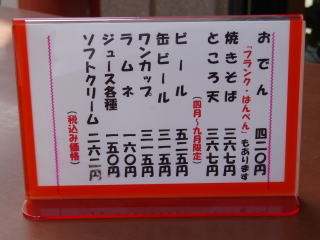 おでん 四二〇円
「フランク・はんぺん」もあります
焼きそば 三六七円
ところ天 三六七円
(四月～九月限定)
ビール 五二五円
缶ビール 三一五円
ワンカップ 三一五円
ラムネ 一六〇円
ジュース各種 一五〇円
ソフトクリーム 二六二円
(税込み価格)